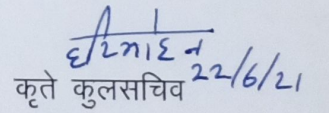 कृते कुलसचिव 22/6/21